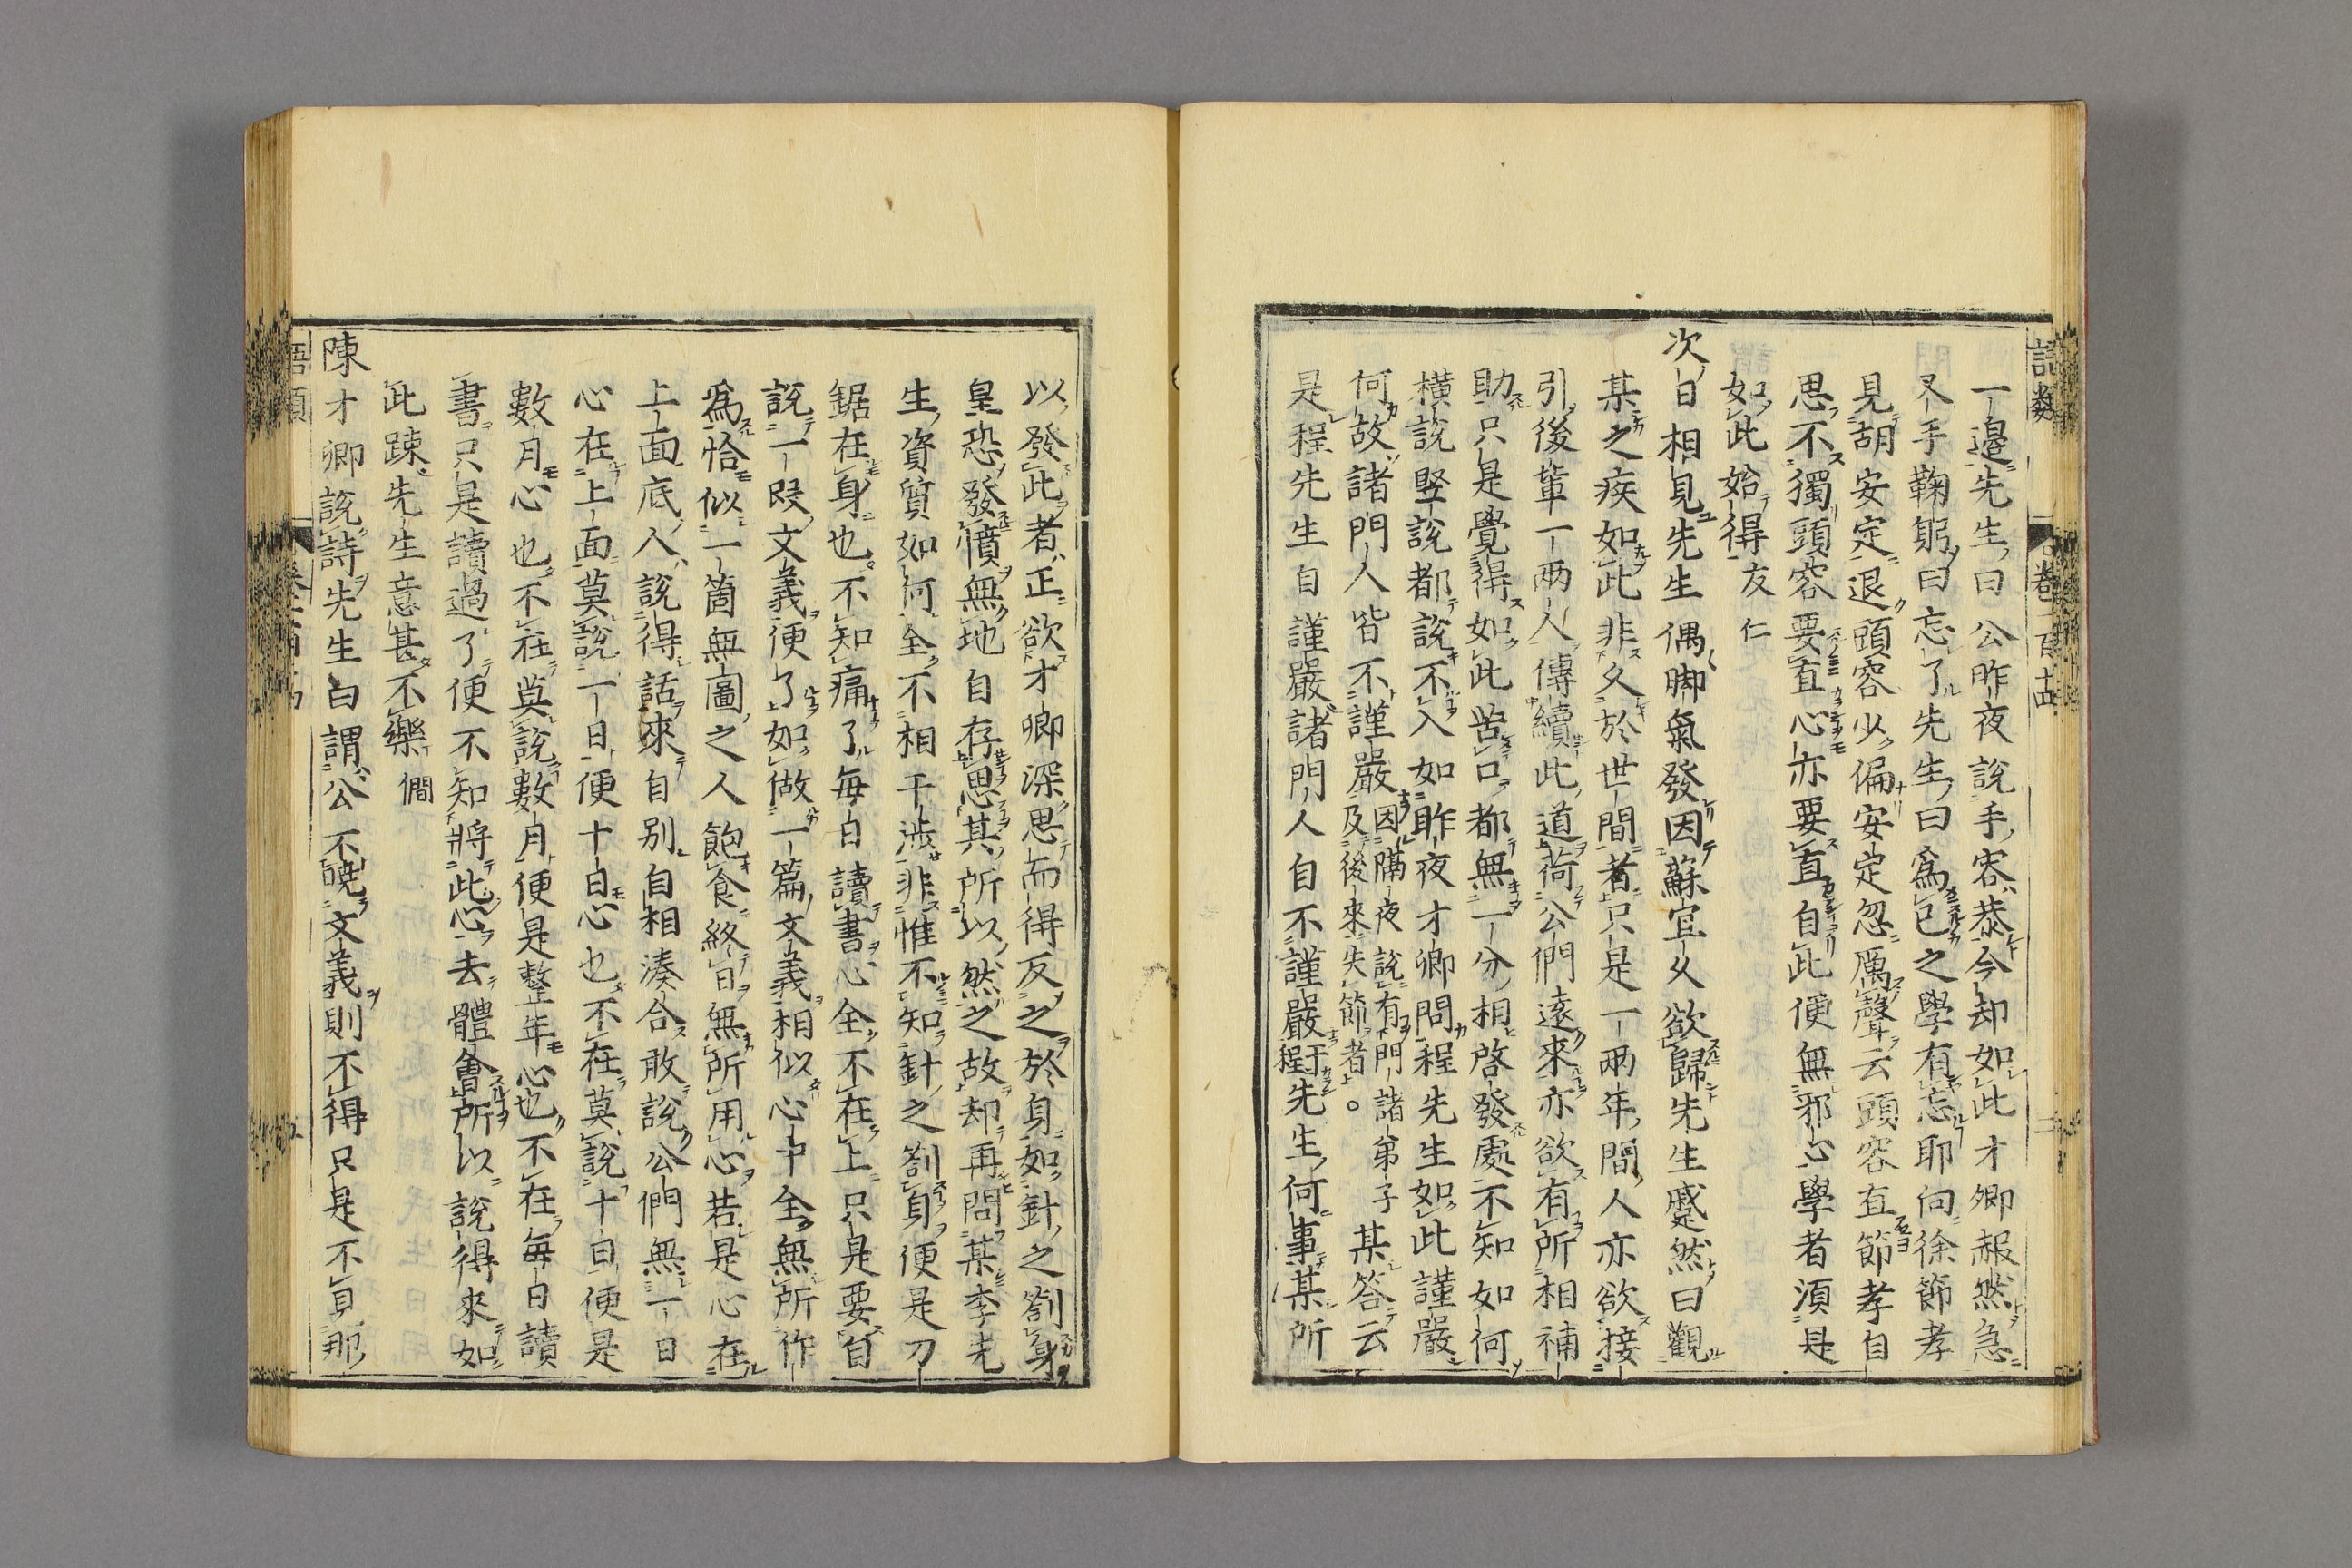 語類 卷一百十四
一邉先生曰公昨夜說手容恭今却如此才卿赧然急
叉手鞠躬曰忘了先生曰爲已之學有忘耶向徐節孝
見胡安定退頭容少偏安定忽厲聲云頭容直節孝自
思不獨頭容要直心亦要直自此便無邪心學者須是
如此始得 友仁
次日相見先生偶脚氣發因蘇宜乆欲歸先生蹙然曰觀
某之疾如此非乆於世間者只是一兩年間人亦欲接
引後輩一兩人傳續此道荷公們遠來亦欲有所相補
助只是覺得如此苦口都無一分相啓發處不知如何
橫說竪說都說不入如昨夜才卿問程先生如此謹嚴
何故諸門人皆不謹嚴因隔夜說有門諸弟子及後來失節者。某答云
是程先生自謹嚴諸門人自不謹嚴干程先生何事某所
以發此者正欲才卿深思而得反之於身如針之劄身
皇恐發憤無地自存思其所以然之故却再問某李先
生資質如何全不相干涉非惟不知針之劄身便是刀
鋸在身也不知痛了每日讀書心全不在上只是要自
說一段文義便了如做一篇文義相似心中全無所作
爲恰似一箇無圖之人飽食終日無所用心若是心在
上面底人說得話來自別自相湊合敢說公們無一日
心在上面莫說一日便十日心也不在莫說十日便是
數月心也不在莫說數月便是整年心也不在每日讀
書只是讀過了便不知將此心去體會所以說得來如
此疎先生意甚不樂 僩
陳才卿說詩先生曰謂公不曉文義則不得只是不見那